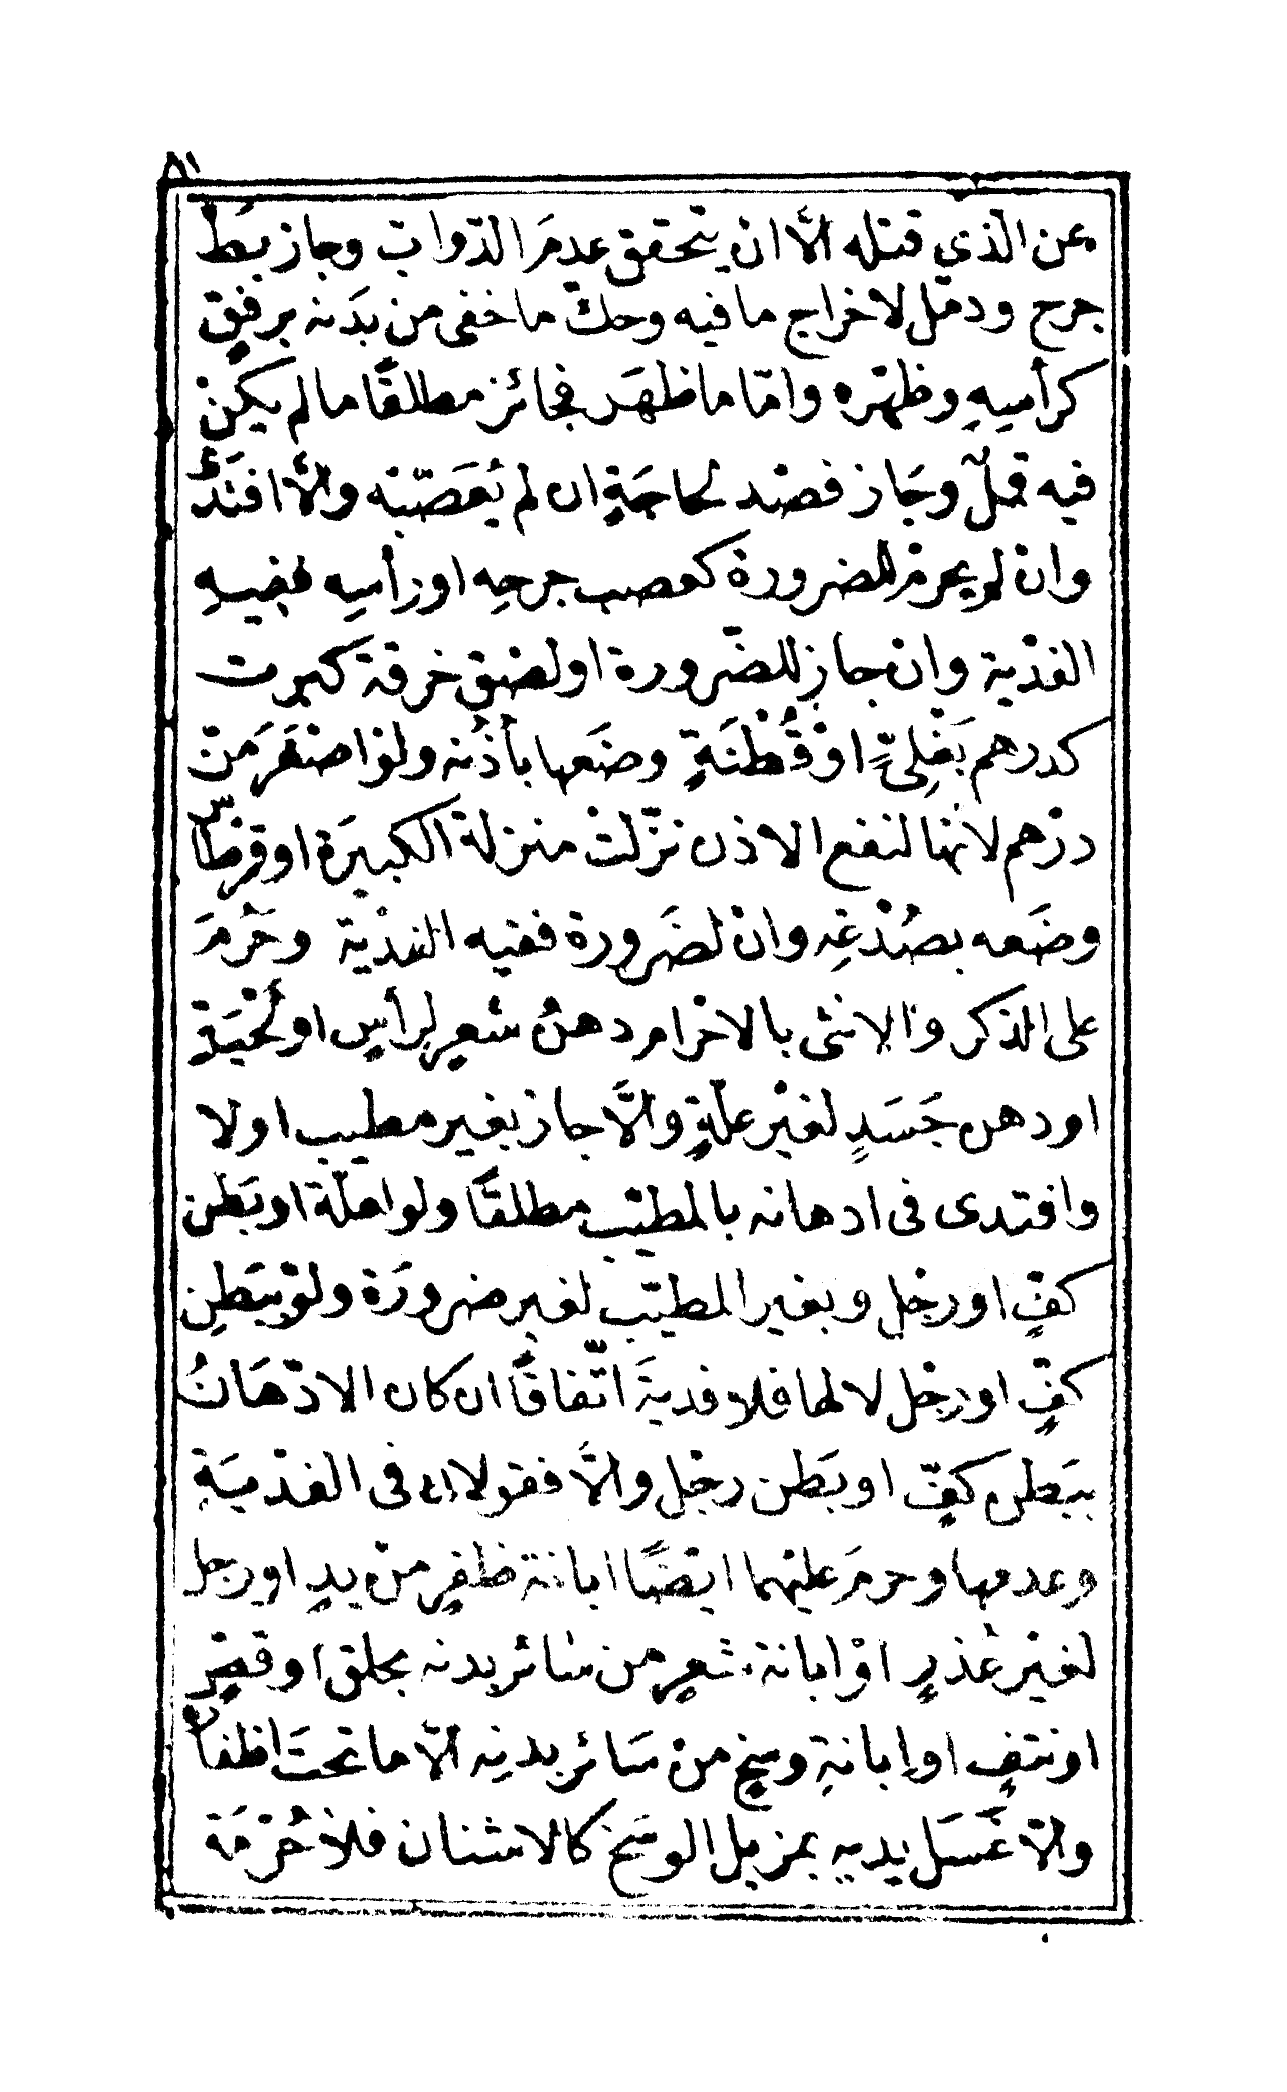 ٨١
عن الذي قتله الّا ان يتحقق عدمَ الدّواب وجاز بَطّ
جرح ودمّل لاخراج ما فيه وحكّ ما خفى من بَدَنه برفقٍ
كرأسِهِ وظهْره وامّا ما ظهَر فجائز مطلقًا ما لم يكنْ
فيه قملٌ وجَاز فصْد لحاجَةٍ ان لم يُعَصّبْه والّا افتَدَى
وانْ لم يحرمْ للضرورة كعصب جرحِه او رأسِه ففيهِ
الفدْية وانْ جاز للضّرورة او لصْق خرقة كبرت
كدرهم بَغْلِىٍّ اوْ قُطْنَةٍ وضَعها بأذُنه ولوْ اصْغَرَ منْ
درْهم لأنها لنفع الاذن نزّلتْ منزلة الكبيَرة او قرْطاس
وضَعه بصُدْغِه وانْ لضَرورة ففيه الفدْية وحَرُمَ
على الذكر والانثى بالاحْرام دهنُ شعرٍ لرأسٍ او لحْيَةٍ
او دهن جَسَدٍ لغيْر علّةٍ والَّا جاز بغير مطيب او لا
وافتدى فى ادهانه بالمطيّب مطلقًا ولو لعلّة او بَطن
كفٍّ او رجْل وبغير المطيّب لغير ضرورَة ولوْ ببَطنِ
كفٍّ او رجْل لا لها فلا فديَة اتّفاقًا ان كان الادْهَانُ
ببَطن كفٍّ او بَطن رجْل والَّا فقولان فى الفدْيَةِ
وعدمها وحرمَ عليْهما ايْضًا ابانة ظفرٍ منْ يدٍ او رجل
لغيْر عُذرٍ اوْ ابانة شعرٍ من سَائر بدنه بحلق او قصٍّ
او نتفٍ او ابانةِ وسخٍ منْ سَائر بدنِه الّا ما تحتَ اظفاره
والّا غَسل يديه بمزيل الوسَخ كالاشنان فلا حُرْمَة